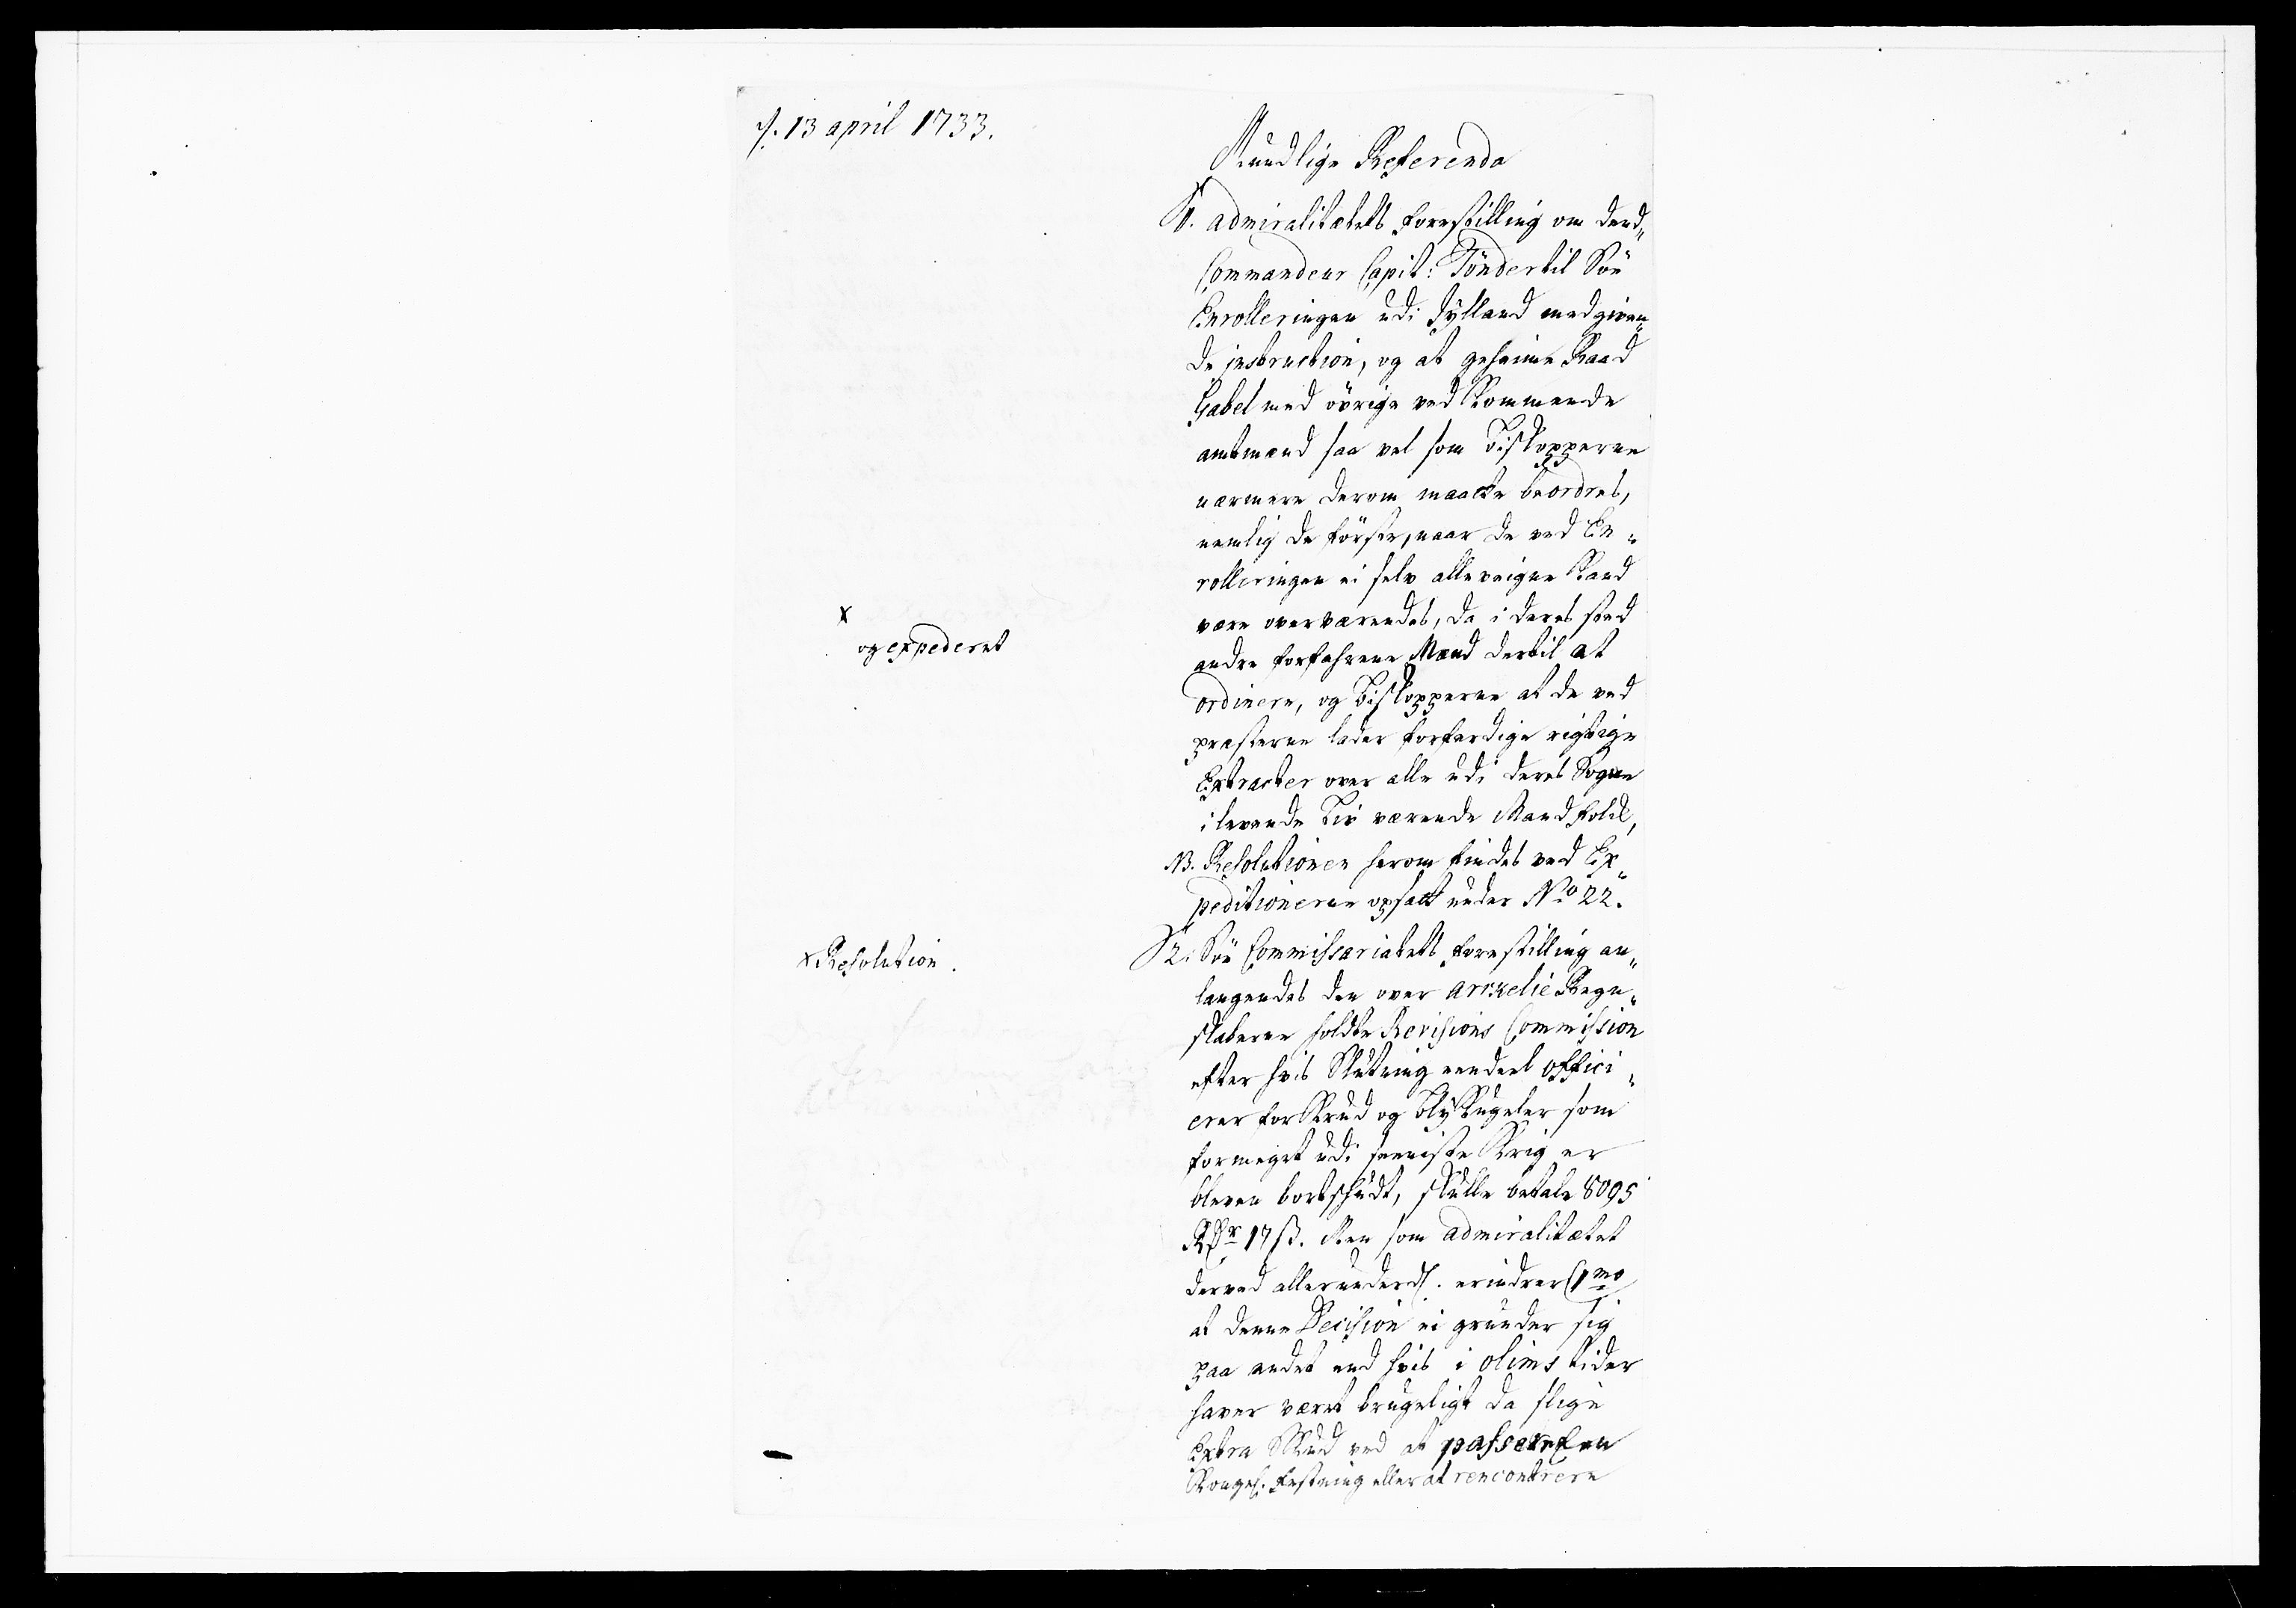 d. 13 april 1733.
Mundlige Referenda
1. Admiralitetets forestilling om dend
Commandeur Capit: Tönder til Söe
Enrolleringen udi Jylland medgiven„
de instruction, og at geheime Raad
Gabel med övrige ved kommende
amtmænd saa vel som Biskopperne
nærmere derom maatte beordres,
nemlig de förste, naar de ved En„
rolleringen ei selv alleveigne kand
være overværendes, da i deres sted
andre forfahrene Mænd dertil at
ordinere, og Biskopperne at de ved
præsterne lader forfærdige rigtige
Extracter over alle udi deres Sogne
i levende Liv værende Mandfolck,
NB. Resolutionen herom findes ved Ex„
peditionerne opsatt under No 22.
2. Söe Commissariatets forestilling an„
langendes den over Arckelie Regn„
skaberne holdte Revisions Commission
efter hvis Slutning eendeel offici„
erer for Krud og Blykugeler som
formeget udi seeniste Krig er
bleven bortskudt, skulle betale 8095
Rdr 17 ß. Men som admiralitetet
derved allerunderd. erindrer 1mo
at denne Decision ei grunder sig
paa andet end hvis i olims tider
haver været brugeligt da slige
Extra Skud ved at passere en
Kongel. Festning eller at rencontrere
x
og expederet
x Resolution.